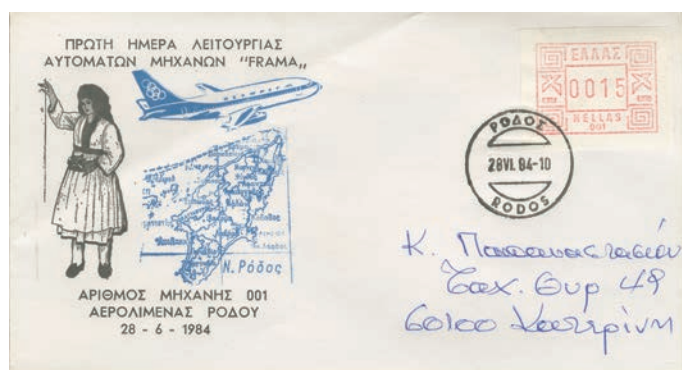 ΠΡΩΤΗ ΗΜΕΡΑ ΛΕΙΤΟΥΡΓΙΑΣ
ΑΥΤΟΜΑΤΩΝ ΜΗΧΑΝΩΝ "FRAMA„
Ν. Ρόδος
ΑΡΙΘΜΟΣ ΜΗΧΑΝΗΣ 001
ΑΕΡΟΛΙΜΕΝΑΣ ΡΟΔΟΥ
28 - 6 - 1984
ΕΛΛΑΣ
0015
HELLAS
001
ΡΟΔΟΣ
28VI.84-10
RODOS
Κ. Παπααναστασίου
Ταχ. Θυρ 49
60100 Κατερίνη